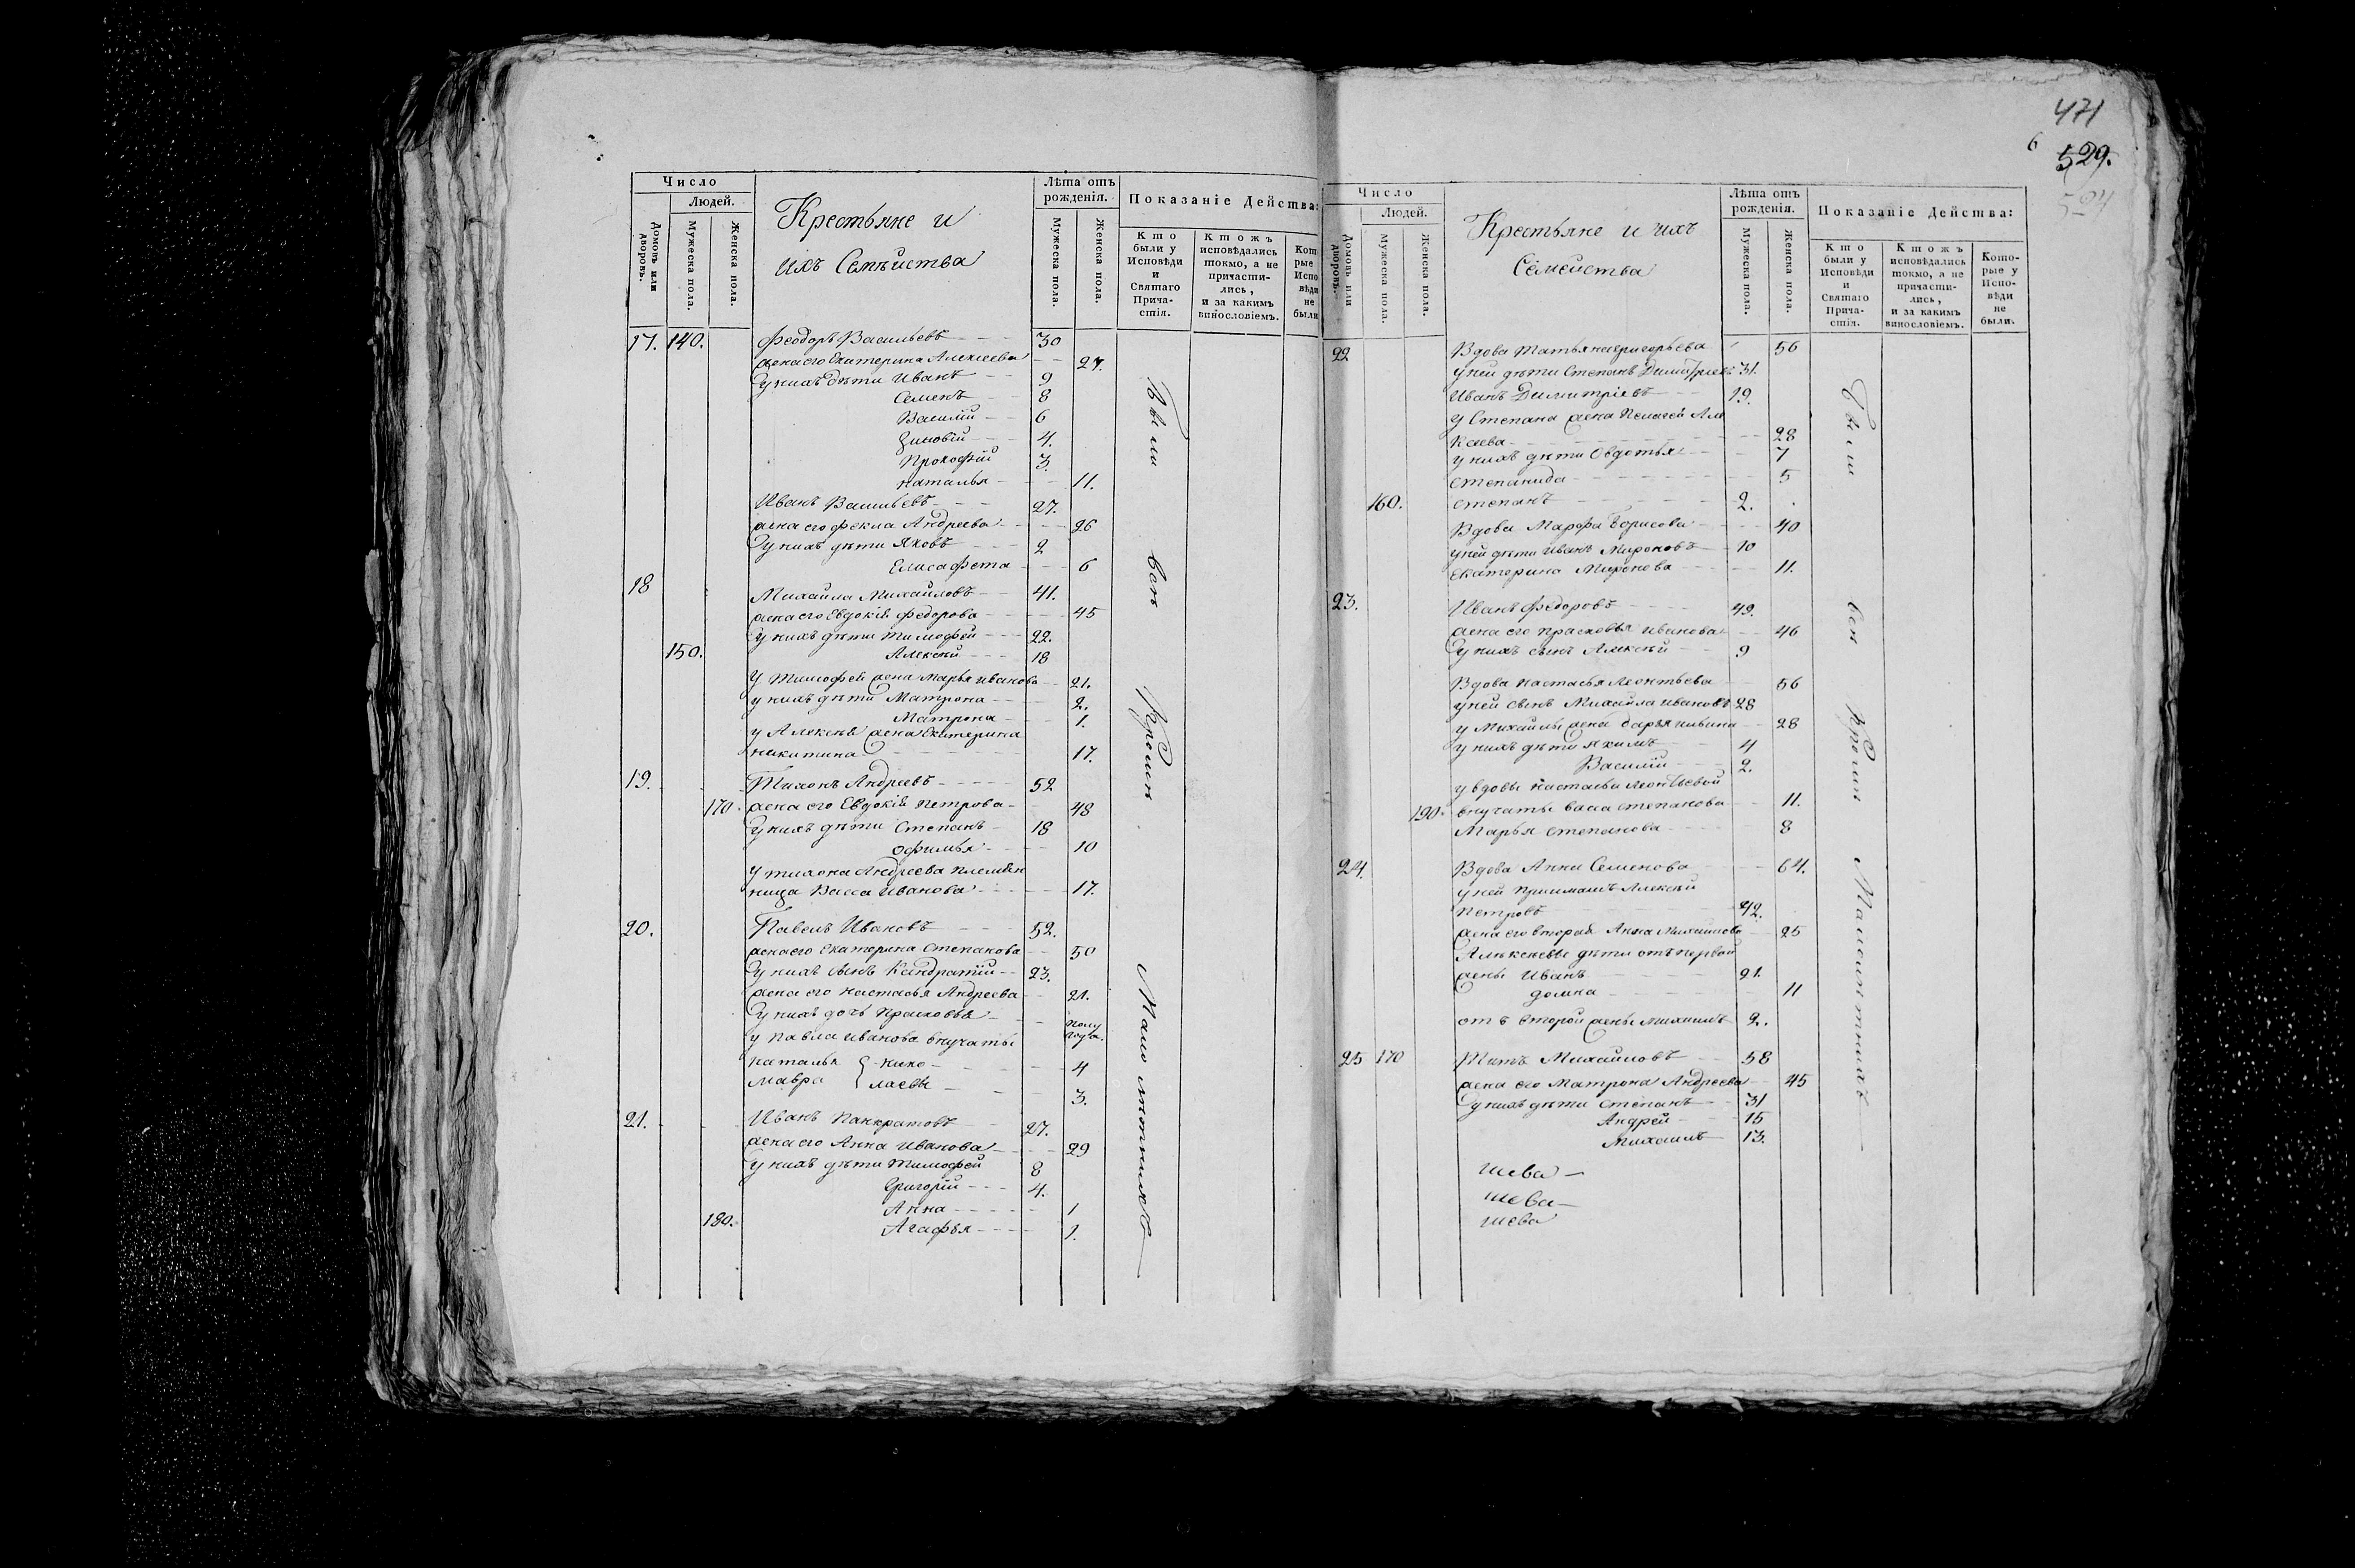 Число
Людей.
Домовъ или дворовъ.
Мужеска пола.
Женска пола.
Крестьяне и
ихъ Семѣйства
Лѣта отъ рожденія.
Мужеска пола.
Женска пола.
Показаніе Дейсшва:
Кшо были у Исповѣди и Свяшаго Прича-сшія.
Кшожъ исповѣдались шокмо, а не причасши-лись, и за какимъ винословіемъ.
Кот рые Испо вѣди не были
17. 140. Феодоръ Васильевъ 30
жена его Екатерина Алексеева 27.
у нихъ дѣти Иванъ 9
Семенъ 8
Василій 6
Зиновій 4.
Прокофій 3.
Наталья 11.
Иванъ Васильевъ 27.
жена его Фекла Андреева 26
у нихъ дѣти Яковъ 2
Елисафета 6
18 Михайла Михайловъ 41.
жена его Евдокія Федорова 45
у нихъ дѣти Тимофей 22.
150. Алексѣй 18
у Тимофея жена Марья Иванова 21.
у нихъ дѣти Матрона 2.
Матрона 1.
у Алексѣя жена Екатерина
Никитина 17.
19. Тихонъ Андреевъ 52
170. жена его Евдокія Петрова 48
у нихъ дѣти Степанъ 18
Офимья 10
у Тихона Андреева племян
ница Васса Иванова 17.
20. Павелъ Ивановъ 52.
жена его Екатерина Степанова 50
у нихъ сынъ Кандратій 23.
жена его Настасья Андреева 21.
у нихъ дочь Прасковья полу года.
у Павла Иванова внучаты
Наталья } Нико 4
Мавра } лаевы 3.
21. Иванъ Панкратовъ 27.
жена его Анна Иванова 29
у нихъ дѣти Тимофей 8
Григорій 4.
Анна 1
180. Агафья 1.
Были всѣ кромѣ Малолѣтнихъ
471
6
529.
524
Число
Людей.
Домовъ или дворовъ.
Мужеска пола.
Женска пола.
Крестьяне и ихъ
Семейства
Лѣта отъ рожденія.
Мужеска пола.
Женска пола.
Показаніе Дейсшва:
Кшо были у Исповѣди и Свяшаго Прича-сшія.
Кшожъ исповѣдались шокмо, а не причасши-лись, и за какимъ винословіемъ.
Кошо-рые у Испо-вѣди не были.
22 Вдова Татьяна Григорьева 56
у ней дѣти Степанъ Димитріевъ 31.
Иванъ Димитріевъ 19.
у Степана жена Пелагея Але
ксеева 28
у нихъ дѣти Овдотья 7
Степанида 5
160. Степанъ 2.
Вдова Марфа Борисова 40
у ней дѣти Иванъ Мироновъ 10
Екатерина Миронова 11.
23. Иванъ Федоровъ 49.
жена его Прасковья Иванова 46
у нихъ сынъ Алексѣй 9
Вдова Настасья Леонтьева 56
у ней сынъ Михайла Ивановъ 28
у Михайлы жена Дарья 28
у нихъ дѣти Якимъ 4
Василій 2.
у вдовы Настасьи Леонтьевой
190. внучаты Васса Степанова 11.
Марья Степанова 8
24. Вдова Анна Семенова 64.
у ней приимышъ Алексѣй
Петровъ 42.
жена его вторая Анна Михайлова 25
Алексѣевы дѣти отъ первой
жены Иванъ 21.
Домна 11
отъ второй жены Михаилъ 2.
25 170 Титъ Михайловъ 58
жена его Матрона Андреева 45
у нихъ дѣти Степанъ 31
Андрей 15
Михаилъ 13.
Были всѣ кромѣ Малолѣтнихъ